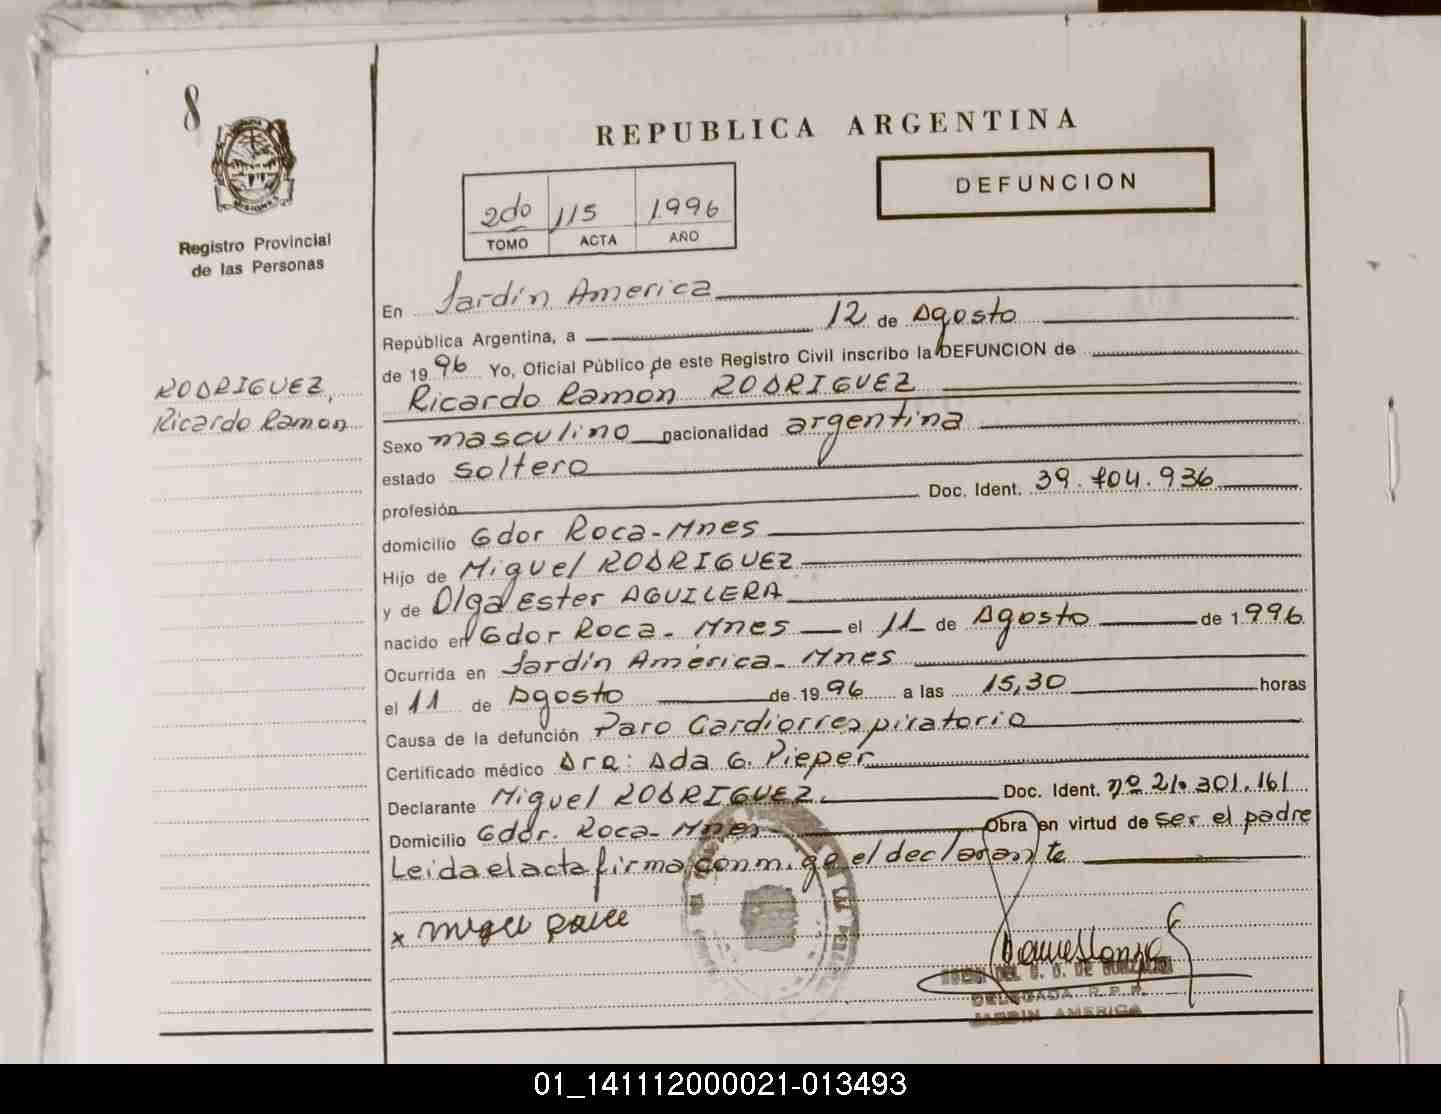 8
REPUBLICA ARGENTINA
DEFUNCION
2do 115 1996
TOMO ACTA AÑO
Registro Provincial
de las Personas
RODRIGUEZ,
Ricardo Ramon
En Jardín America
República Argentina, a 12 de Agosto
de 1996 Yo, Oficial Público de este Registro Civil inscribo la DEFUNCION de
Ricardo Ramón RODRIGUEZ
Sexo masculino nacionalidad argentina
estado soltero
profesión Doc. Ident. 39.404.936
domicilio Gdor Roca-Mnes
Hijo de Miguel RODRIGUEZ
y de Olga Ester AGUILERA
nacido en Gdor Roca-Mnes el 11 de Agosto de 1996
Ocurrida en Jardín América-Mnes
el 11 de Agosto de 1996 a las 15,30 horas
Causa de la defunción Paro Cardiorrespiratorio
Certificado médico Dra: Ada G. Pieper
Declarante Miguel RODRIGUEZ. Doc. Ident. nº 21.301.161
Domicilio Gdor. Roca-Mnes Obra en virtud de ser el padre
Leida el acta firma conmigo el declarante
x
DE GONZALEZ
DELEGADA R.P.P.
JARDIN AMERICA
01_141112000021-013493